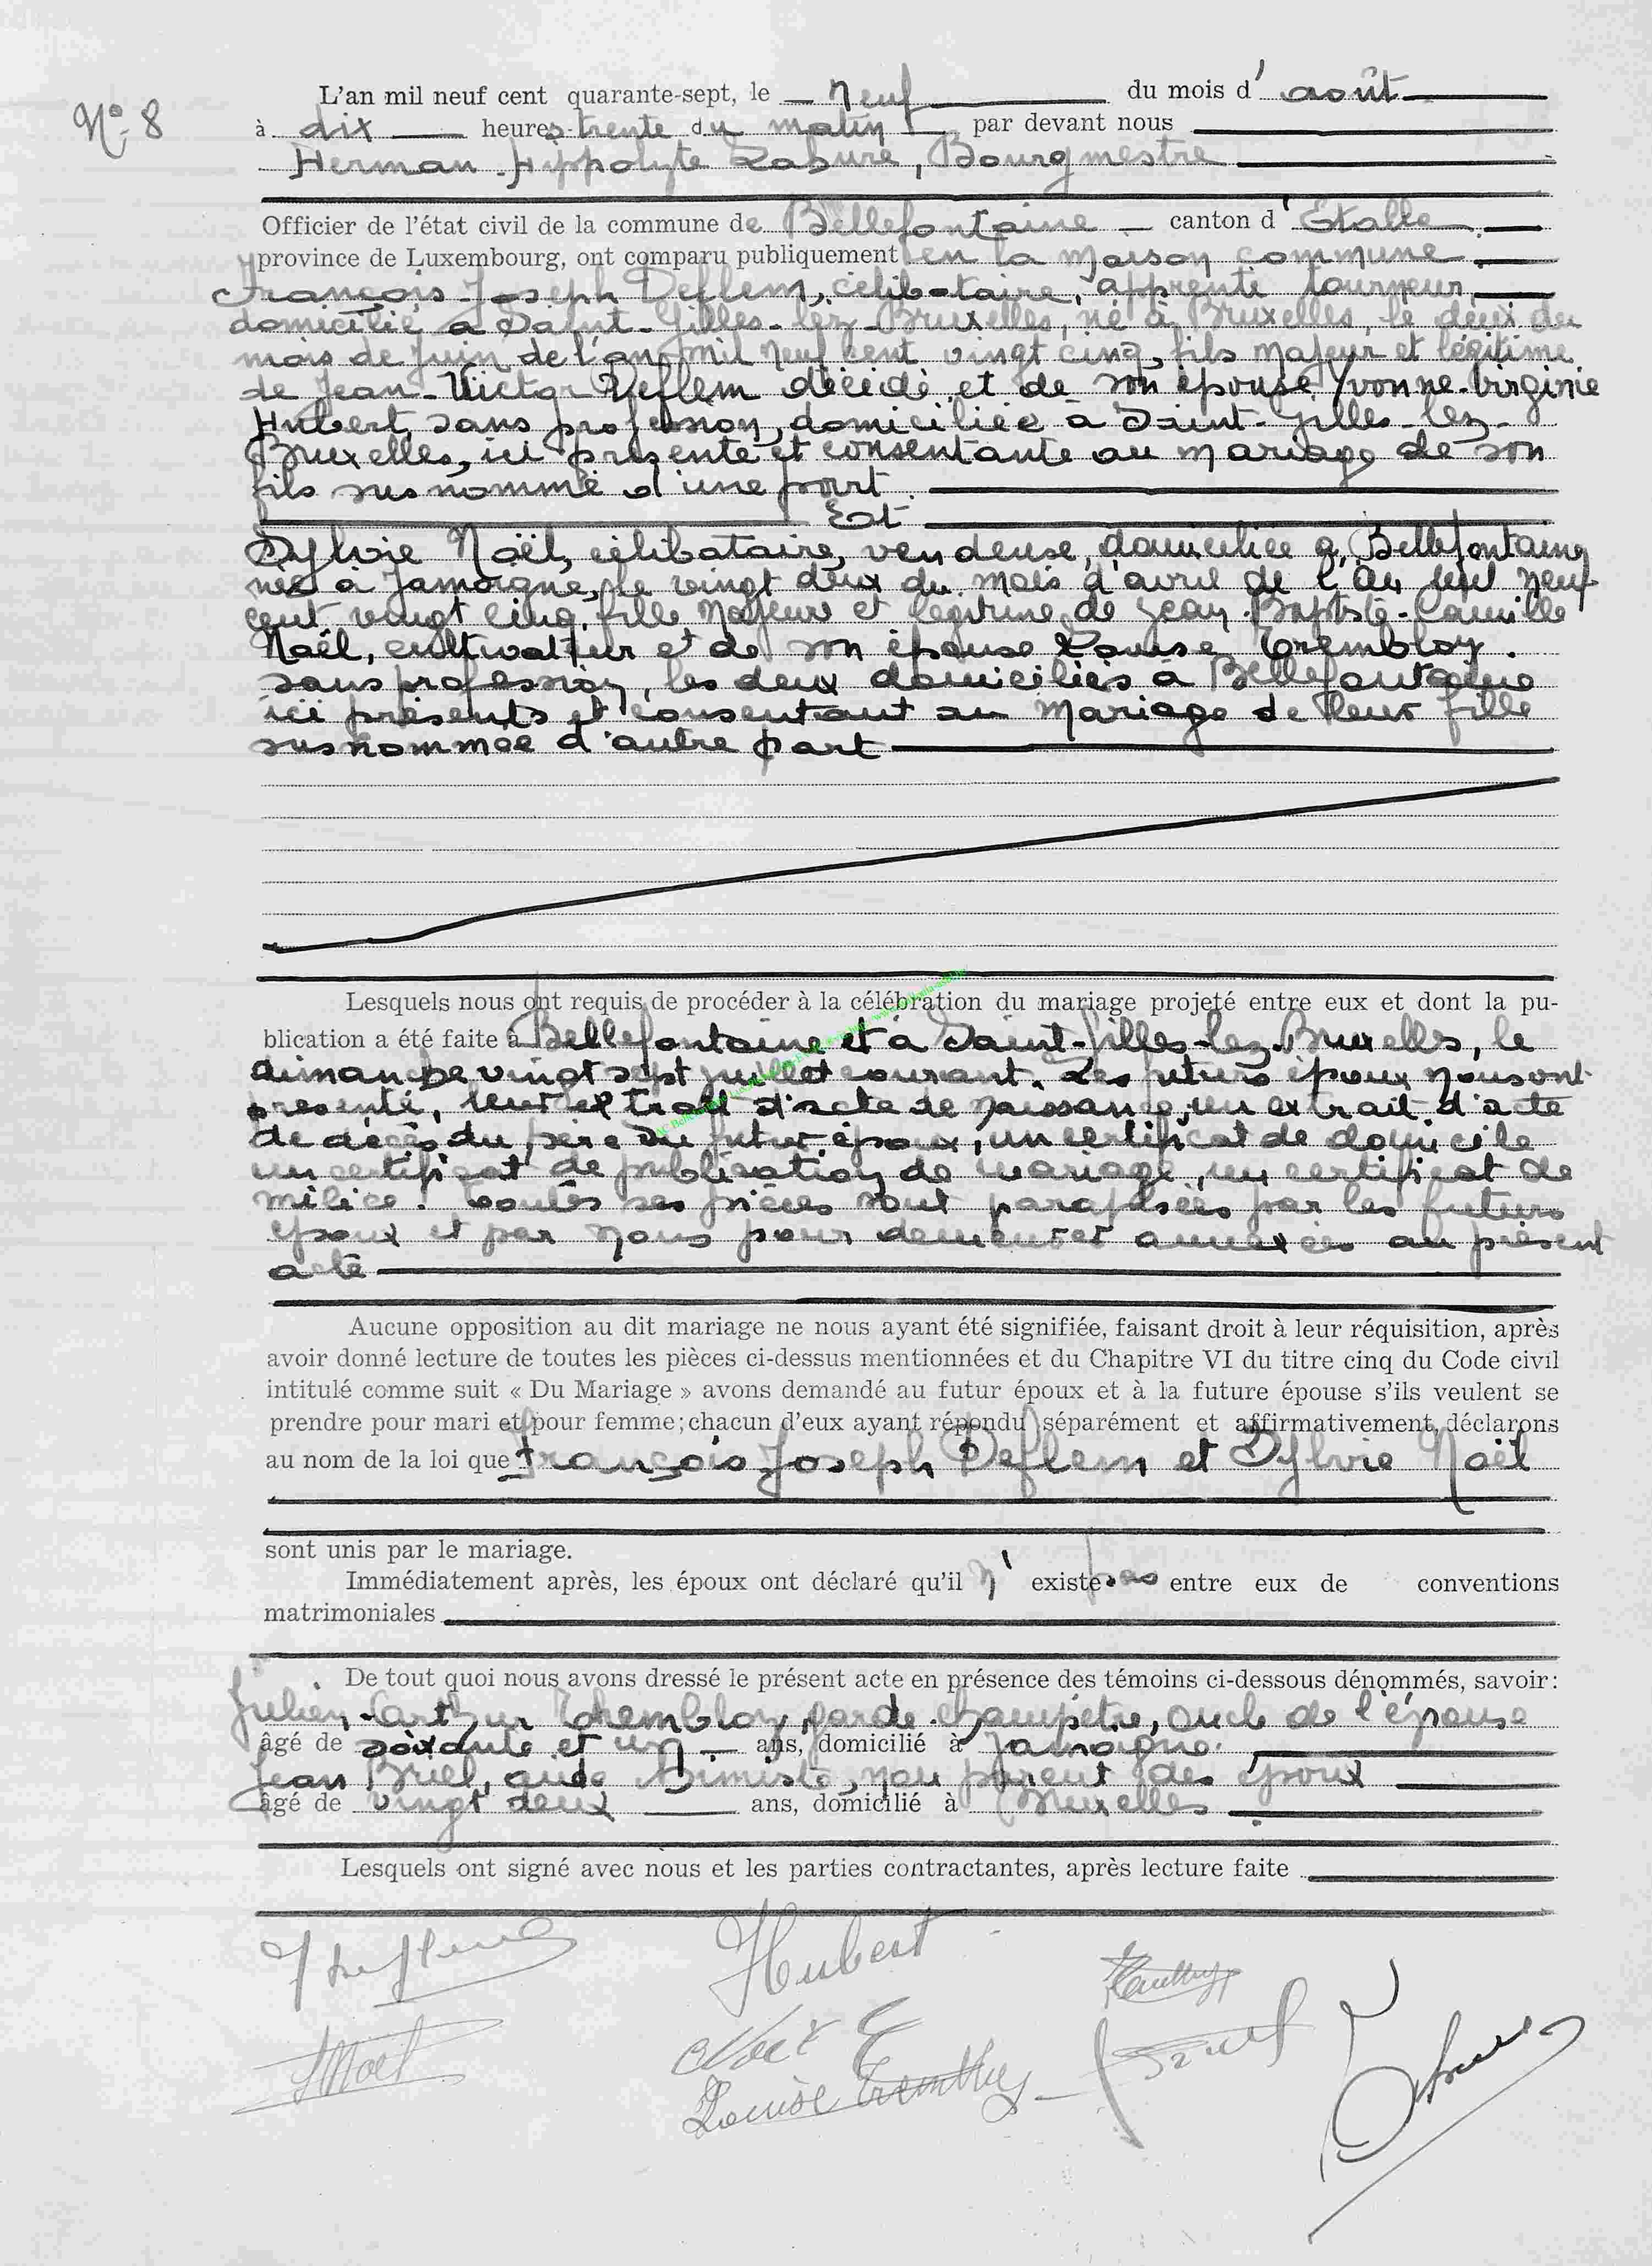 N° 8
L'an mil neuf cent quarante-sept, le neuf du mois d'août
à dix heures trente du matin par devant nous
Herman Hippolyte Labure, Bourgmestre
Officier de l'état civil de la commune de Bellefontaine canton d'Etalle
province de Luxembourg, ont comparu publiquement en la maison commune
François-Joseph Deflem, célibataire, apprenti tourneur,
domicilié à Saint-Gilles-lez-Bruxelles, né à Bruxelles, le deux du
mois de Juin de l'an mil neuf cent vingt cinq, fils majeur et légitime
de Jean-Victor Deflem décédé et de son épouse Yvonne-Virginie
Hubert, sans profession, domiciliée à Saint-Gilles-lez-
Bruxelles, ici présente et consentante au mariage de son
fils susnommé d'une part.
Et
Sylvie Noël, célibataire, vendeuse, domiciliée à Bellefontaine
née à Jamoigne, le vingt deux du mois d'avril de l'an mil neuf
cent vingt cinq, fille majeure et légitime de Jean-Baptiste-Camille
Noël, cultivateur et de son épouse Louise Trembloy.
sans profession, les deux domiciliés à Bellefontaine
ici présents et consentant au mariage de leur fille
susnommée d'autre part
Lesquels nous ont requis de procéder à la célébration du mariage projeté entre eux et dont la pu-
blication a été faite à Bellefontaine et à Saint-Gilles-lez-Bruxelles, le
dimanche vingt sept juillet courant. Les futurs époux nous ont
présenté, leur extrait d'acte de naissance, un extrait d'acte
de décès du père du futur époux, un certificat de domicile
un certificat de publication de mariage, un certificat de
milice. Toutes ses pièces sont paraphées par les futurs
époux et par nous pour demeurer annexées au présent
acte
Aucune opposition au dit mariage ne nous ayant été signifiée, faisant droit à leur réquisition, après
avoir donné lecture de toutes les pièces ci-dessus mentionnées et du Chapitre VI du titre cinq du Code civil
intitulé comme suit « Du Mariage » avons demandé au futur époux et à la future épouse s'ils veulent se
prendre pour mari et pour femme; chacun d'eux ayant répondu séparément et affirmativement, déclarons
au nom de la loi que François-Joseph Deflem et Sylvie Noël
sont unis par le mariage.
Immédiatement après, les époux ont déclaré qu'il n'existe pas entre eux de conventions
matrimoniales
De tout quoi nous avons dressé le présent acte en présence des témoins ci-dessous dénommés, savoir:
Julien-Arthur Trembloy, garde-champêtre, oncle de l'épouse
âgé de soixante et un ans, domicilié à Jamoigne.
Jean Briel, aide non parent des époux
âgé de vingt deux ans, domicilié à Bruxelles
Lesquels ont signé avec nous et les parties contractantes, après lecture faite
Hubert
Noël
Noël C
Louise Trembloy